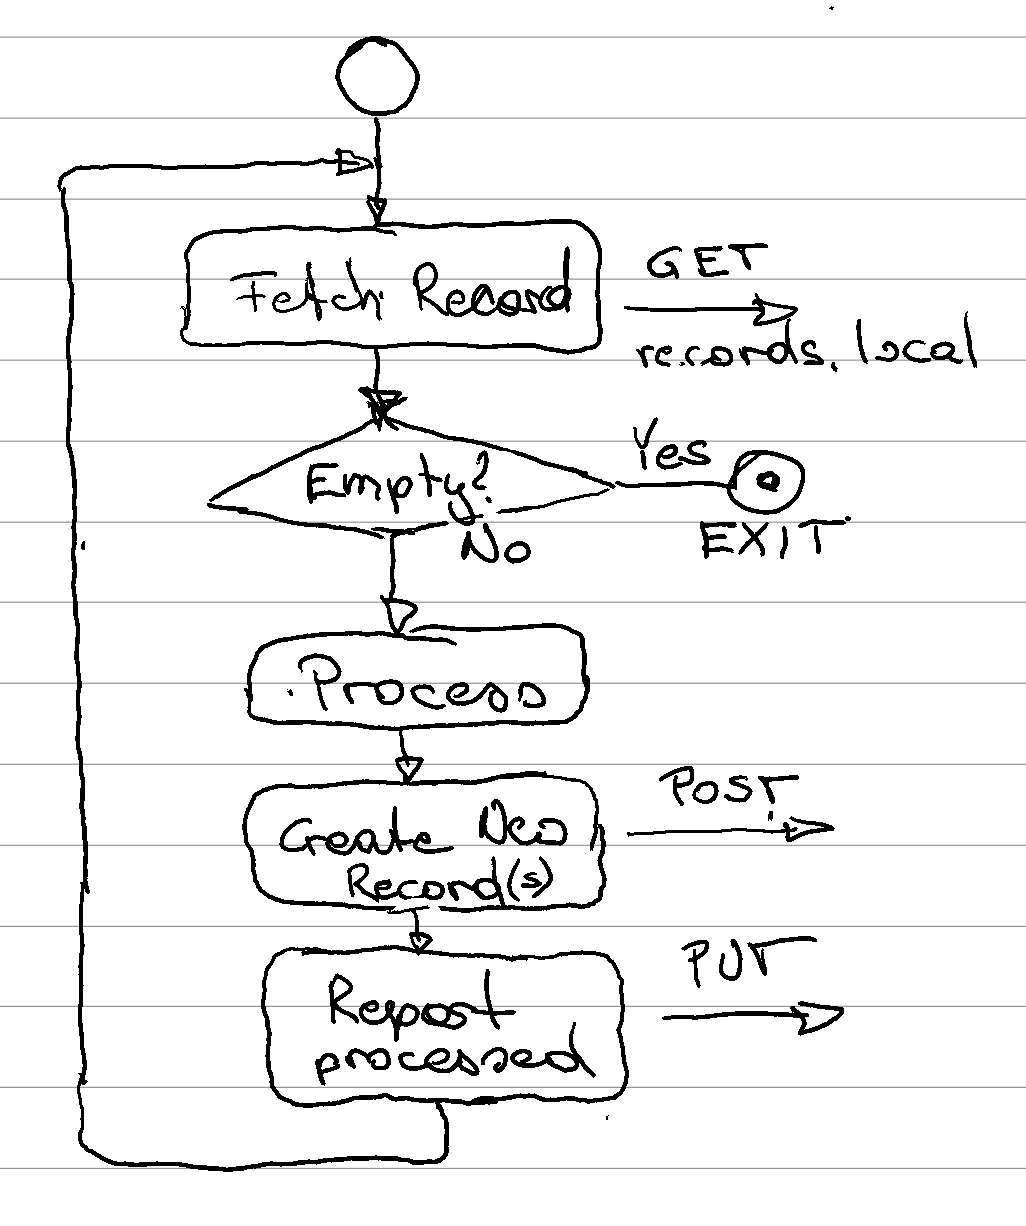 Fetch Record
GET
records.local
Empty?
Yes
EXIT
No
Process
Create New
Record(s)
POST
Repost
processed
PUT